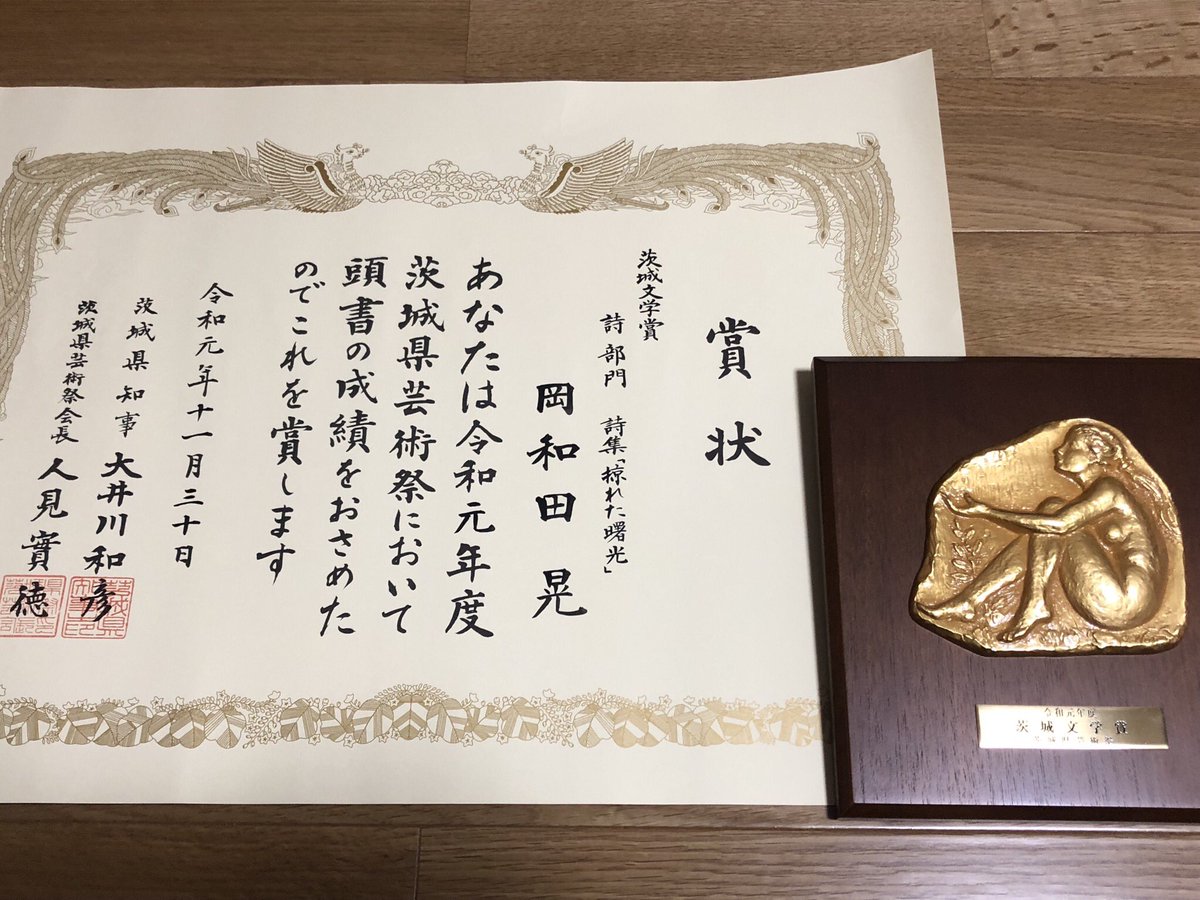 賞状
茨城文学賞
詩部門 詩集「掠れた曙光」
岡和田晃
あなたは令和元年度
茨城県芸術祭において
頭書の成績をおさめた
のでこれを賞します
令和元年十一月三十日
茨城県知事 大井川和彦
茨城県芸術祭会長 人見實徳
令和元年度
茨城文学賞
茨城県芸術祭